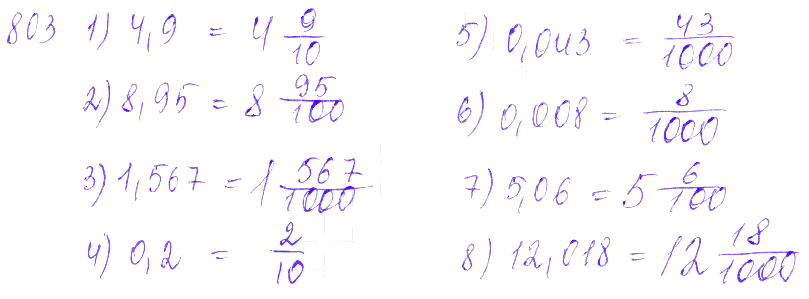 803 1) 4,9 = 4 9/10
2) 8,95 = 8 95/100
3) 1,567 = 1 567/1000
4) 0,2 = 2/10
5) 0,043 = 43/1000
6) 0,008 = 8/1000
7) 5,06 = 5 6/100
8) 12,018 = 12 18/1000